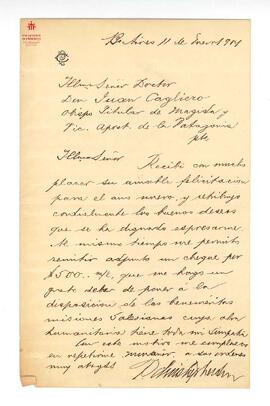 Bs Aires 11 de Enero 1901
Illmo Señor Doctor
Don Juan Cagliero
Obispo Titular de Magida y
Vic. Apost. de la Patagonia
pte
Illmo Señor
Recibí con mucho
placer su amable felicitacion
para el año nuevo, y retribuyo
cordialmente los buenos deseos
que se ha dignado espresarme.
Al mismo tiempo me permito
remitir adjunto un cheque por
$500. m/n, que me hago un
grato deber de poner à la
disposicion de las beneméritas
misiones Salesianas cuya obra
humanitaria tiene toda mi simpatia
Con este motivo me complazco
en repetirme Monseñor, a sus ordenes
muy atto